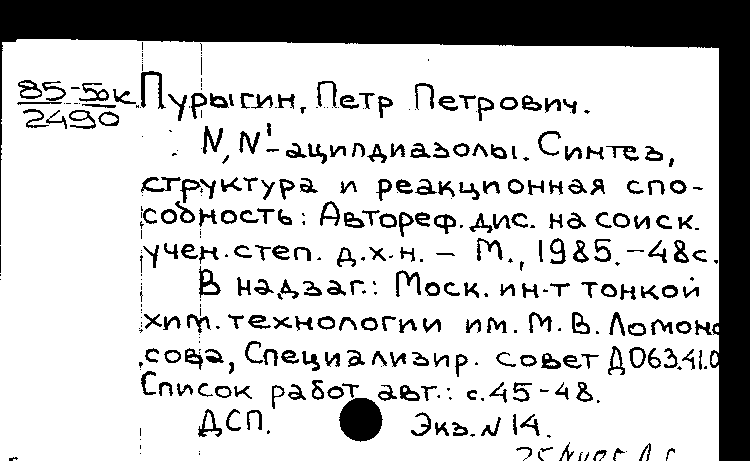 85-50к
2490
Пурыгин, Петр Петрович.
N,N'-ацилдиазолы. Синтез,
структура и реакционная спо-
собность: Автореф. дис. на соиск.
учен. степ. д.х.н. – М., 1985. – 48с.
В надзаг.: Моск. ин-т тонкой
хим. технологии им. М. В. Ломоно
сова, Специализир. совет Д063.41.0
Список работ авт.: с.45-48.
ДСП. Экз. N 14.